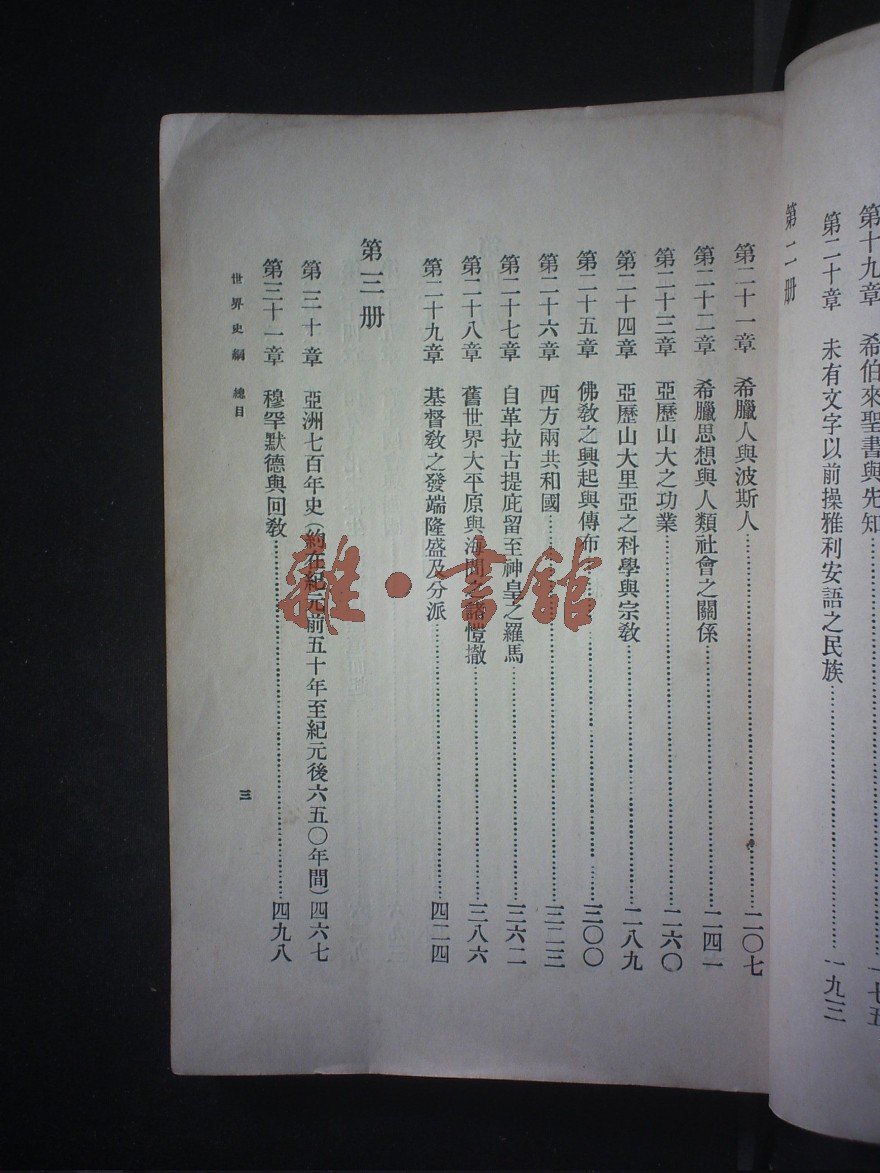 第十九章　希伯來聖書與先知…一七五
第二十章　未有文字以前操雅利安語之民族…一九三
第二册
第二十一章　希臘人與波斯人…二〇七
第二十二章　希臘思想與人類社會之關係…二四一
第二十三章　亞歷山大之功業…二六〇
第二十四章　亞歷山大里亞之科學與宗教…二八九
第二十五章　佛教之興起與傳布…三〇〇
第二十六章　西方兩共和國…三二三
第二十七章　自革拉古提庇留至神皇之羅馬…三六二
第二十八章　舊世界大平原與海間之諸愷撒…三八六
第二十九章　基督教之發端隆盛及分派…四二四
第三册
第三十章　亞洲七百年史(約在紀元前五十年至紀元後六五〇年間)四六七
第三十一章　穆罕默德與回教…四九八
世界史綱　總目
三
雜·書館